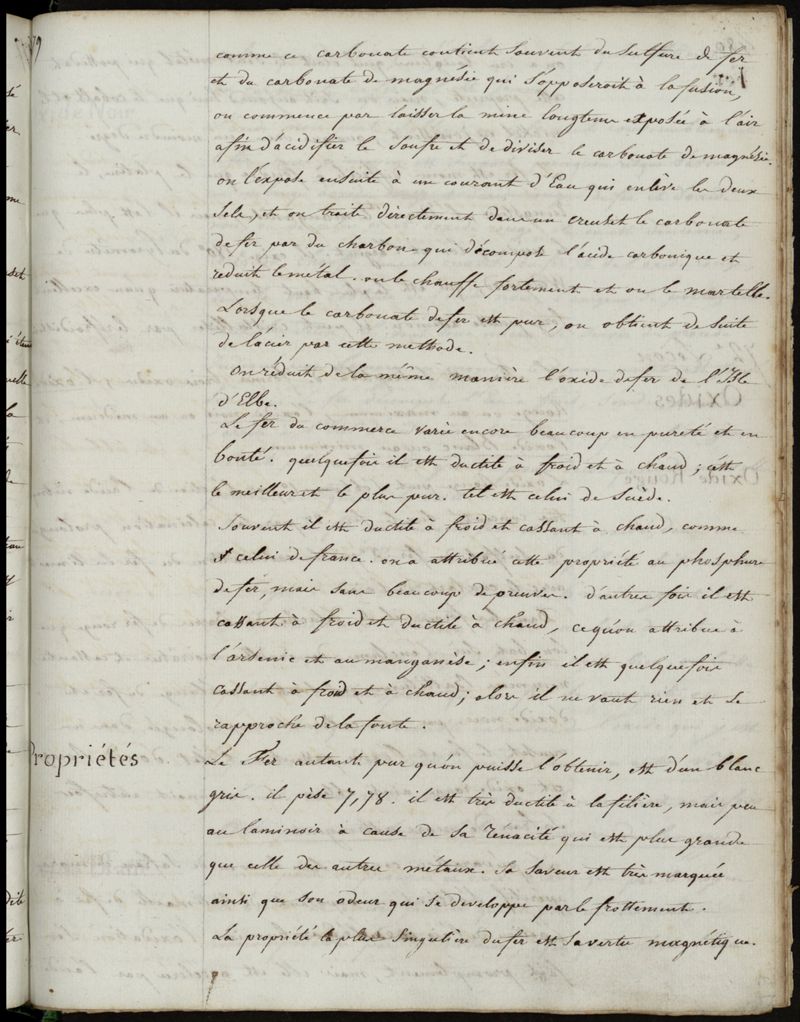 comme ce carbonate contient souvent du sulfure de fer
et du carbonate de magnésie qui s'opposeroit à la fusion,
on commence par laisser la mine longtems exposée à l'air
afin d'acidifier le soufre et de diviser le carbonate de magnésie.
on l'expose ensuite à un courant d'Eau qui enlève les deux
sels, et on traite directement dans un creuset le carbonate
de fer par du charbon qui décompose l'acide carbonique et
réduit le métal. on le chauffe fortement et on le martelle.
Lorsque le carbonate de fer est pur, on obtient de suite
de l'acier par cette methode.
On réduit de la même manière l'oxide de fer de l'Isle
d'Elbe.
Le fer du commerce varie encore beaucoup en pureté et en
bonté. quelquefois il est ductile à froid et à chaud; c'est
le meilleur et le plus pur. tel est celui de Suède.
Souvent il est ductile à froid et cassant à chaud, comme
celui de france. on a attribué cette propriété au phosphure
de fer, mais sans beaucoup de preuves. d'autres fois il est
cassant à froid et ductile à chaud, ce qu'on attribue à
l'arsenic et au manganèse; enfin il est quelquefois
cassant à froid et à chaud; alors il ne vaut rien et se
rapproche de la fonte.
Propriétés
Le Fer autant pur qu'on puisse l'obtenir, est d'un blanc
gris. il pèse 7,78. il est très ductile à la filière, mais peu
au laminoir à cause de sa ténacité qui est plus grande
que celle des autres métaux. sa saveur est très marquée
ainsi que son odeur qui se developpe par le frottement.
La propriété la plus singulière du fer est sa vertu magnétique.